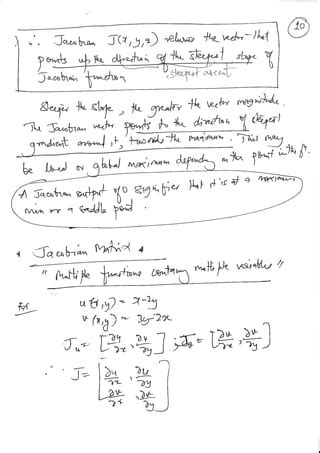 10
∴ Jacobian J(x, y, z) returns the vector that
points up the direction of the steepest slope of
Jacobian function
steepest ascent
Steeper the slope, the greater the vector magnitude.
The Jacobian vector points to the direction of steepest
gradient around it, towards the maximum. This may
be local or global maximum depending on the point in the fⁿ.
A Jacobian output of 0 signifies that it is at a maximum,
min or a saddle point.
* Jacobian Matrix *
" Multiple functions containing multiple variables "
u(x,y) = x-2y
v(x,y) = 3y-2x
J_u = [∂u/∂x, ∂u/∂y] ; J_v = [∂v/∂x, ∂v/∂y]
∴ J = [∂u/∂x ∂u/∂y
∂v/∂x ∂v/∂y]